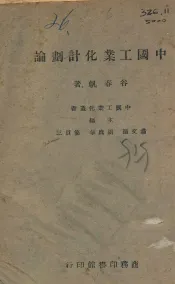 326.11
26.
中國工業化計劃論
谷春帆著
中國工業化叢書
主編
商務印書館印行